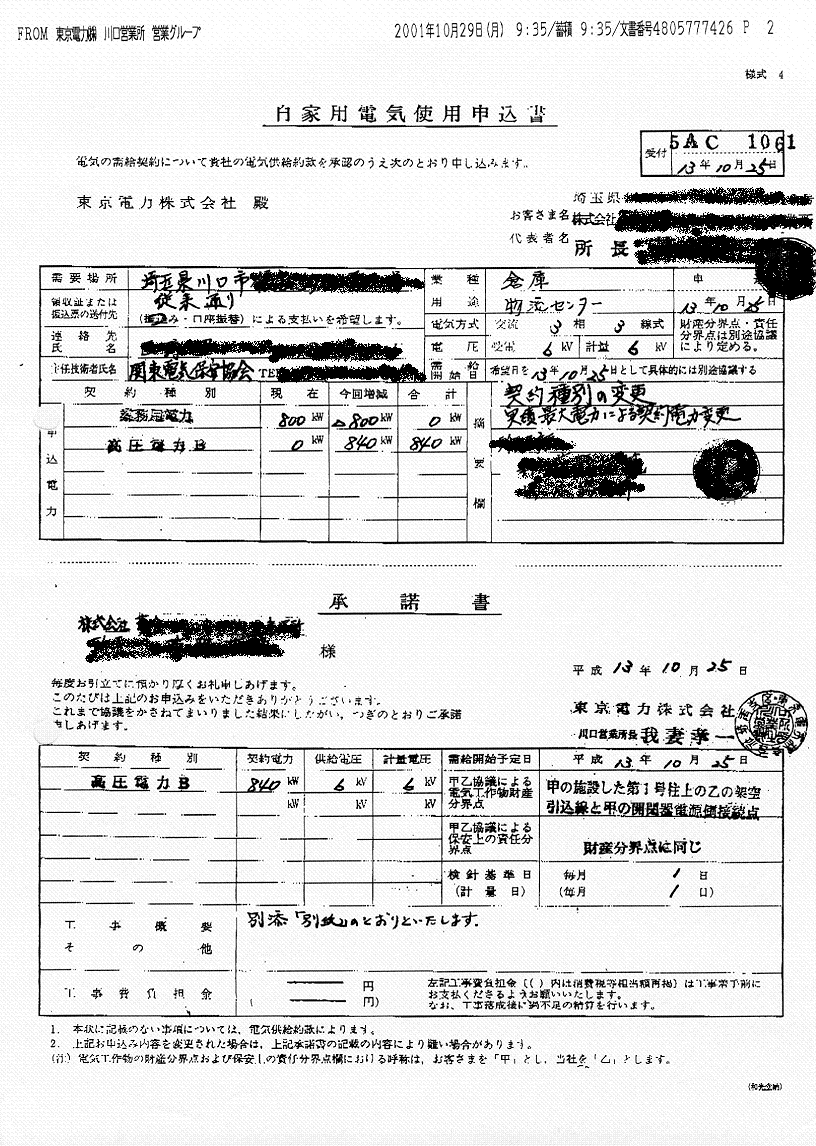 FROM 東京電力㈱ 川口営業所 営業グループ 2001年10月29日(月) 9:35/蓄積 9:35/文書番号4805777426 P 2
様式 4
自家用電気使用申込書
受付 5AC 1061
13年10月25日
電気の需給契約について貴社の電気供給約款を承認のうえ次のとおり申し込みます。
東京電力株式会社 殿
埼玉県
お客さま名 株式会社
代表者名 所長
需要場所 埼玉県川口市 業種 倉庫 申
領収証または振込票の送付先 従来通り 用途 物流センター 13年10月25日
(振込み・口座振替)による支払いを希望します。
連絡先氏名 電気方式 交流 3相 3線式 財産分界点・責任分界点は別途協議により定める。
電圧 受電 6kV 計量 6kV
主任技術者氏名 関東電気保安協会 TEL 需給開始日 希望日を13年10月25日として具体的には別途協議する
契約種別 現在 今回増減 合計 摘要欄 契約種別の変更
申込電力 業務用電力 800kW △800kW 0kW 実績最大電力による契約電力変更
高圧電力B 0kW 840kW 840kW
承諾書
株式会社
様
平成13年10月25日
毎度お引立てに預かり厚くお礼申しあげます。
このたびは上記のお申込みをいただきありがとうございます。
これまで協議をかさねてまいりました結果にしたがい、つぎのとおりご承諾
申しあげます。
東京電力株式会社
川口営業所長 我妻孝一
契約種別 契約電力 供給電圧 計量電圧 需給開始予定日 平成13年10月25日
高圧電力B 840kW 6kV 6kV 甲乙協議による電気工作物財産分界点 甲の施設した第1号柱上の乙の架空
kW kV kV 引込線と甲の開閉器電源側接続点
甲乙協議による保安上の責任分界点 財産分界点に同じ
検針基準日 毎月 1日
(計量日) (毎月 1日)
工事概要 その他 別添「別紙」のとおりといたします。
工事費負担金 円
( 円)
左記工事費負担金(( )内は消費税等相当額再掲)は工事着手前に
お支払くださるようお願いいたします。
なお、工事落成後に過不足の精算を行います。
1. 本状に記載のない事項については、電気供給約款によります。
2. 上記お申込み内容を変更された場合は、上記承諾書の記載の内容により難い場合があります。
(注) 電気工作物の財産分界点および保安上の責任分界点欄における呼称は、お客さまを「甲」とし、当社を「乙」とします。